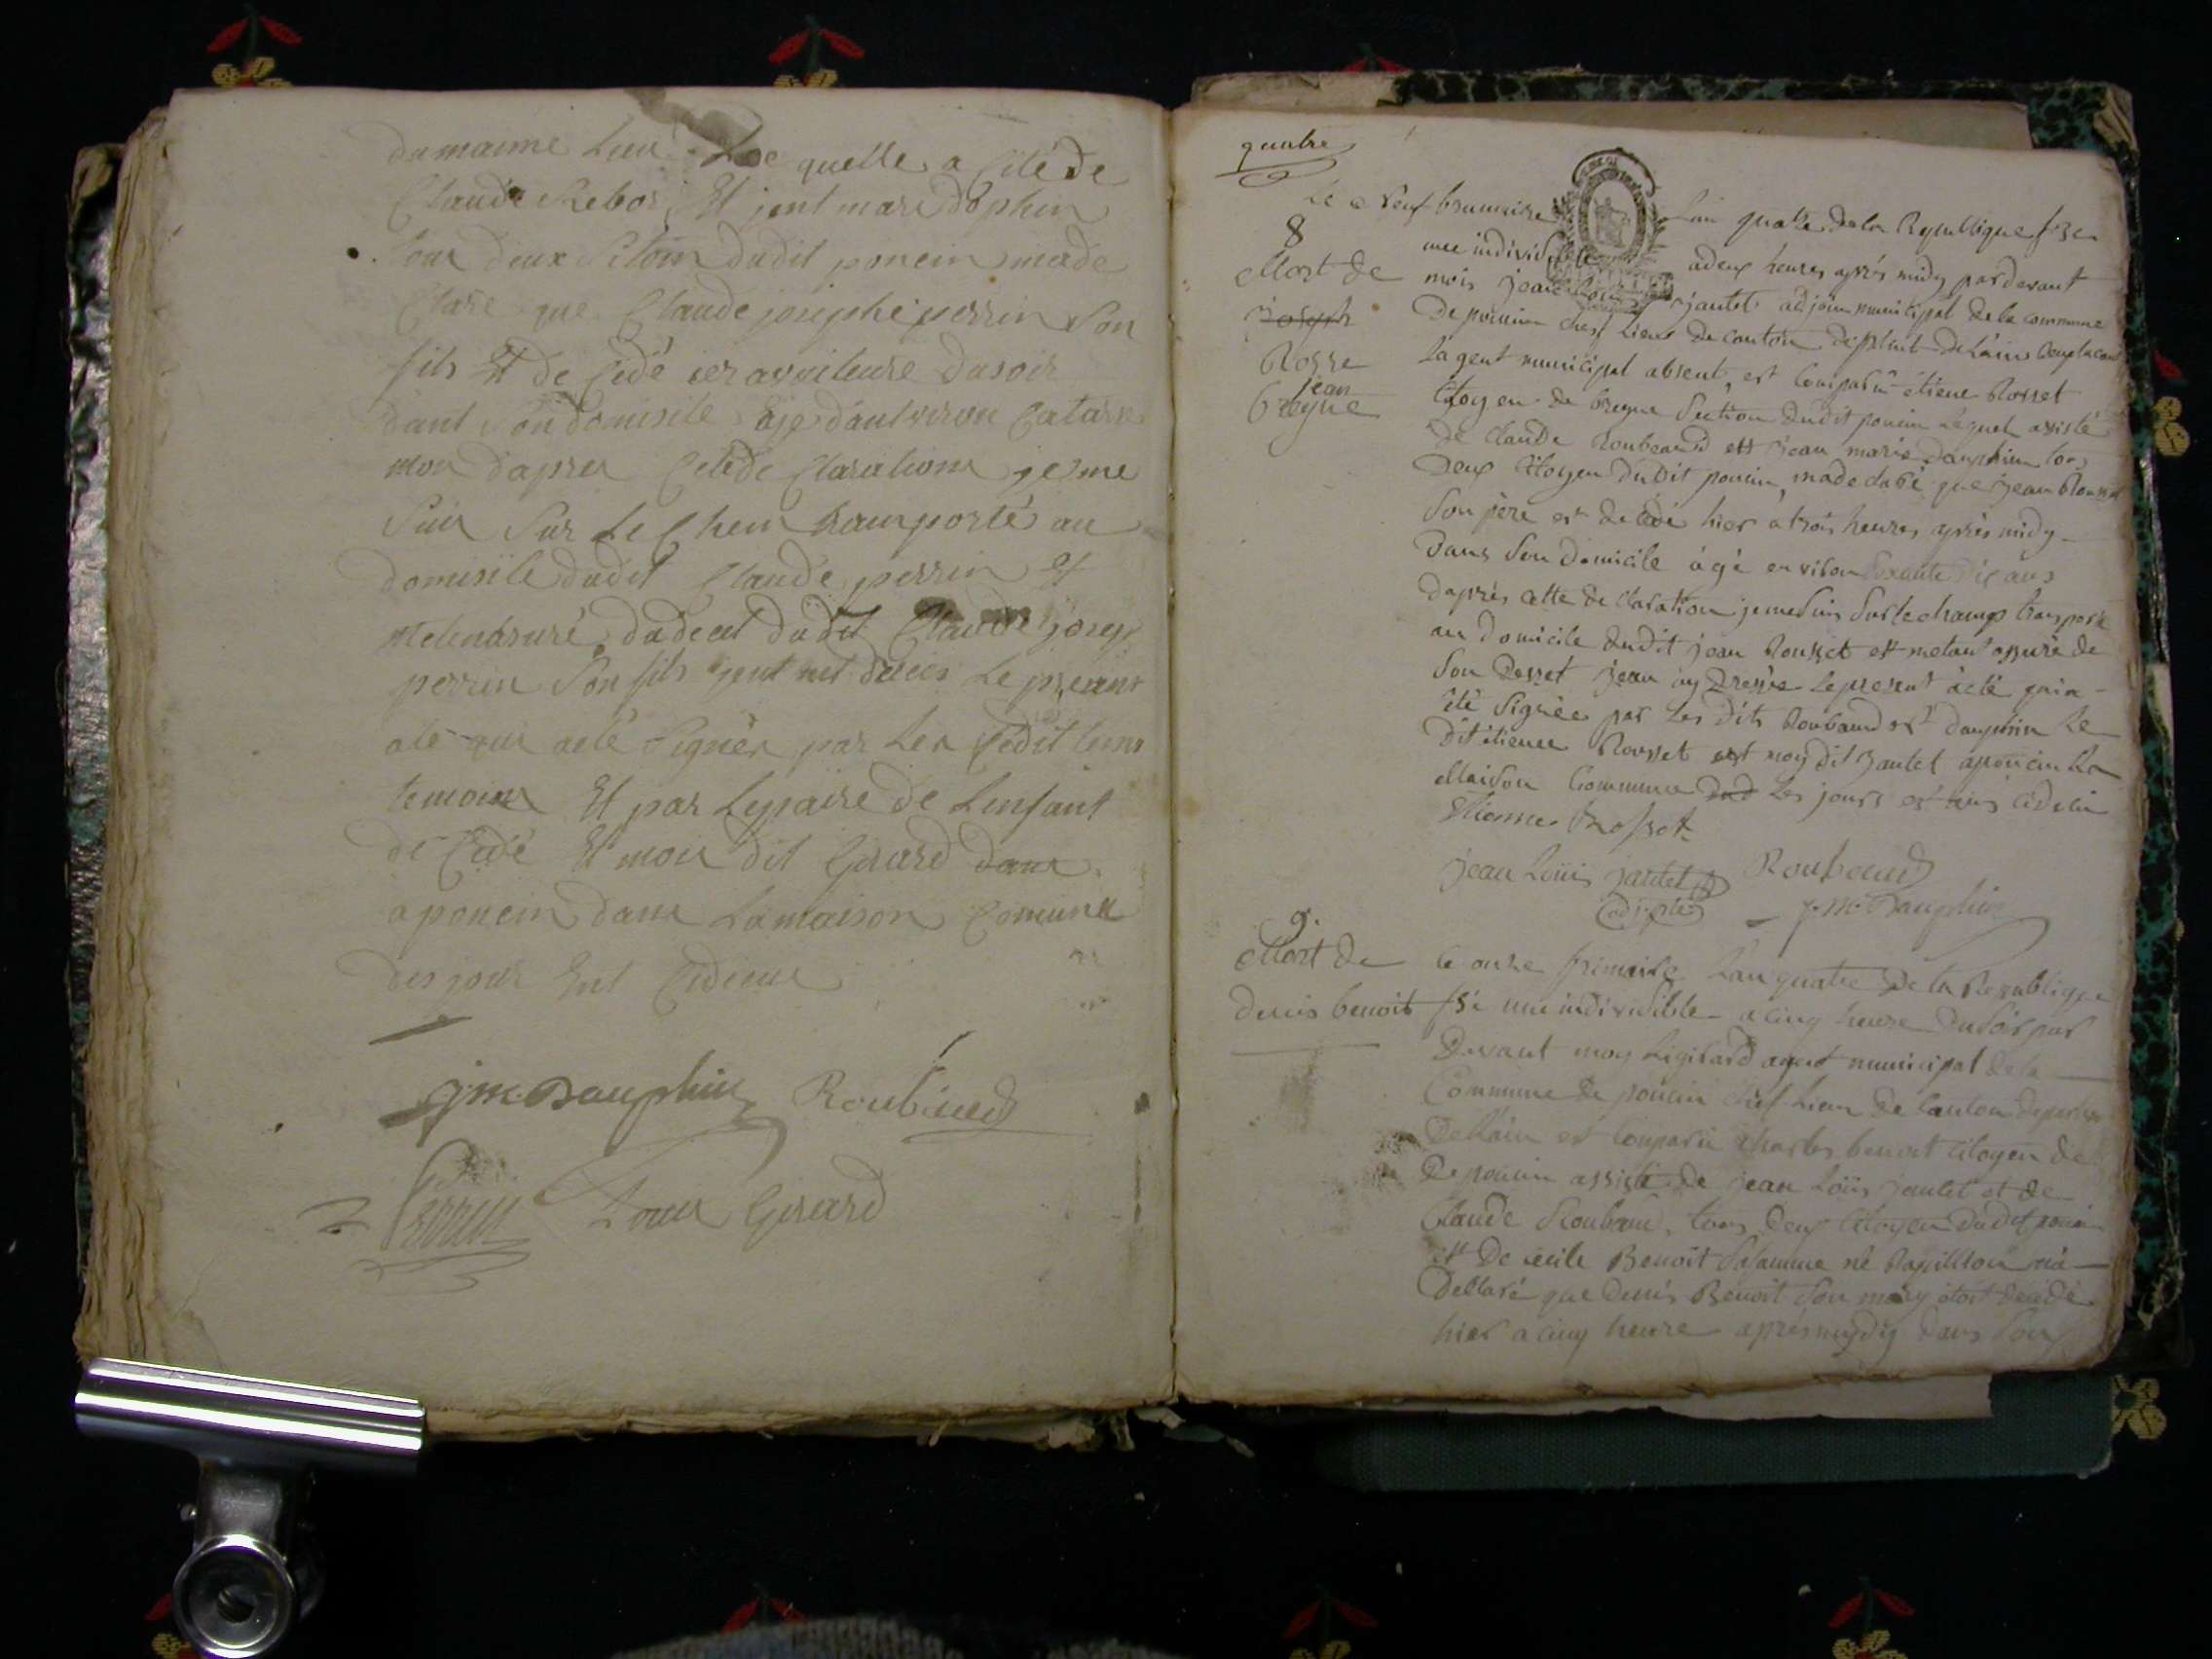 du maime Lieu Le quelle a sité de
Claude Rebor Et jent mari dophin
tour deux sitoin dudit poncin ma de
Clare que Claude josephe perrin Son
fils Et de cedé ier a huiteure du soir
dant Son domisile aje d'antviron Catorse
mon daprer cete de Claration je me
Suis Sur Le Chen tranporté au
domisile dudit Claude perrin Et
dudit Claude josep
perrin Son fils jent net dreces Le presant
ate qui aété Signér par Ler sédit
temoins Et par Lepaire de Lenfant
de Cedé Et moir dit Girard
a poncin dans La maison Comune
des jour Ent Cidesus
j m Dauphin Roubaud
Perrin Louis Girard
quatre
Le neuf brumaire Lan quatre de la Republique fse
8
une indivisible a deux heures après midy par devant
Mort de
mois jean Louis jantet adjoin municipal de la commune
Joseph
de poncin chef Lieux de canton depmt de Lain
Rosse
Lagent municipal absent, est Comparu étiene Rosset
jean
Citoyen de bregne Section dudit poncin Lequel assisté
bregne
de Claude Roubeaud ett jean marie dauphin tous
deux Citoyen dudit poncin, ma declaré que jean Rousset
Son père est décédé hier a trois heures après midy
dans Son domicile âgé environ Soixante dix ans
daprès cette declaration je me suis Sur le champ transporté
au domicile dudit jean Rousset et metant assuré de
Son desset jean ay dressée le present acte qui a
été Signée par Les dits Roubaud et dauphin Le
dit étienne Rousset est moy dit jantet a poncin La
Maison Commune dud Les jours et ans cidesu
Etienne Rosset
jean Louis jantet Roubeaud
adjoint J. M. Dauphin
9.
Mort de
le onze frimaire Lan quatre de la Republique
denis benoit
fse une indivisible a cinq heure du soir par
devant moy Ligirard agent municipal de la
Commune de poncin chef Lieux de Canton
de Lain est Comparu Charles benoit Citoyen de
de poncin assisté de jean Loüis jantet et de
Claude Roubaud, tous deux Citoyen dudit poncin
et De cécile Benoit Safamme né Papillion ma
déclaré que denis Benoit Son mary étoit décédé
hier a cinq heure apres mydy dans Son